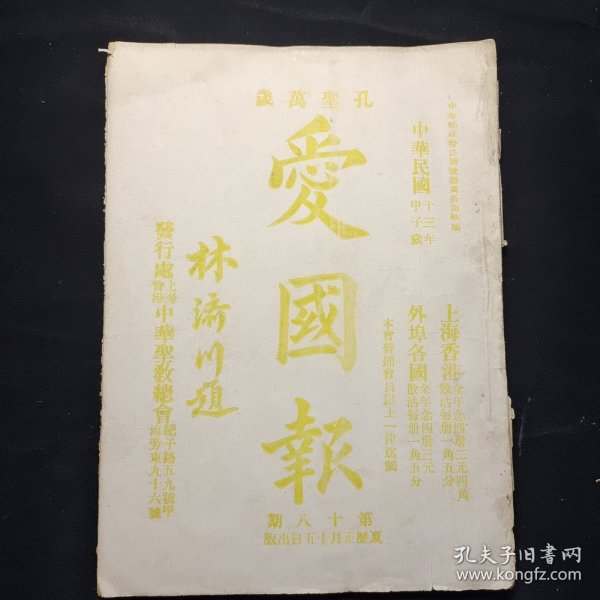 孔聖萬歲
中華郵政特准掛號認為新聞紙類
中華民國十三年甲子歲
上海香港全年念四册二元四角
散沽每册一角五分
外埠各國全年念四册三元
散沽每册一角五分
本會普通會員以上一律送閱
愛國報
第十八期
夏歷正月十五日出版
林濟川題
發行處上海香港中華聖教總會
孔夫子旧书网
www.kongfz.com